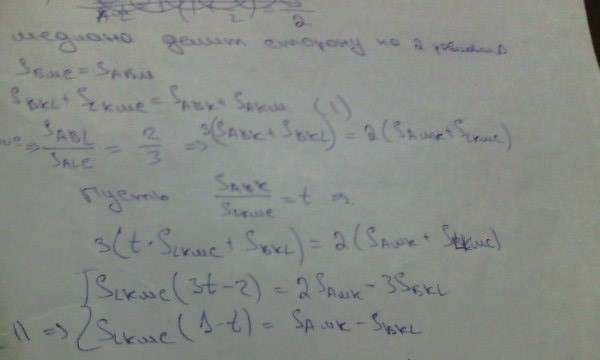 2
медиана делит сторону на 2 равных
S_BMC = S_ABM
S_BKL + S_LKMC = S_ABK + S_AKM (1)
=> S_ABL / S_ALC = 2/3 => 3(S_ABK + S_BKL) = 2(S_AMK + S_LKMC)
Пусть S_ABK / S_LKMC = t =>
3(t · S_LKMC + S_BKL) = 2(S_AMK + S_LKMC)
S_LKMC (3t - 2) = 2S_AMK - 3S_BKL
1) => { S_LKMC (1 - t) = S_AMK - S_BKL